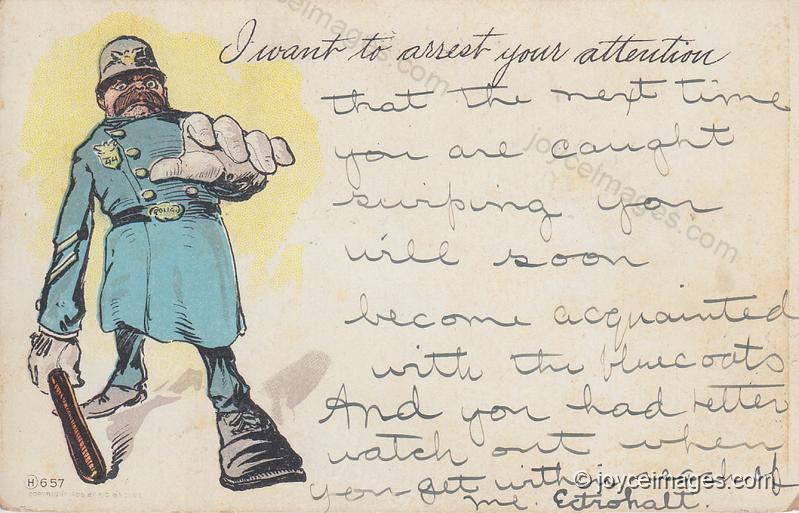 I want to arrest your attention
that the next time
you are caught
surping you
will soon
become acquainted
with the bluecoats
And you had better
watch out when
you get with
me. Ectrohalt.
44
POLICE
H 657
joyceimages.com
joyceimages.com
© joyceimages.com